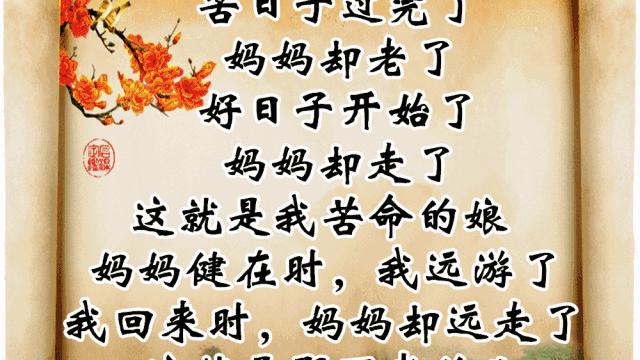 苦日子过完了
妈妈却老了
好日子开始了
妈妈却走了
这就是我苦命的娘
妈妈健在时，我远游了
我回来时，妈妈却远走了